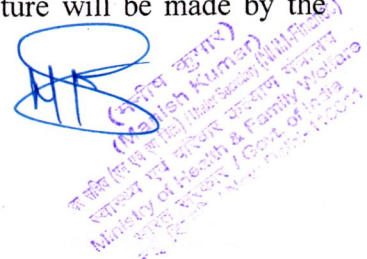 ture will be made by the
(मनीष कुमार)
(Manish Kumar)
अवर सचिव (एन एच एम वित्त) / Under Secretary (NHM Finance)
स्वास्थ्य एवं परिवार कल्याण मंत्रालय
Ministry of Health & Family Welfare
भारत सरकार / Govt. of India
New Delhi-110011